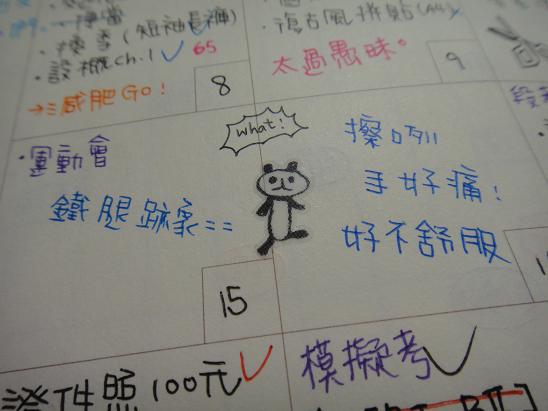 換季(短袖長褲)
・設概ch.1 65
→減肥Go!
8
復古風拼貼(A4)
太過愚昧。
9
・運動會
鐵腿跡象==
what!
擦咧
手好痛!
好不舒服
15
證件照100元
模擬考